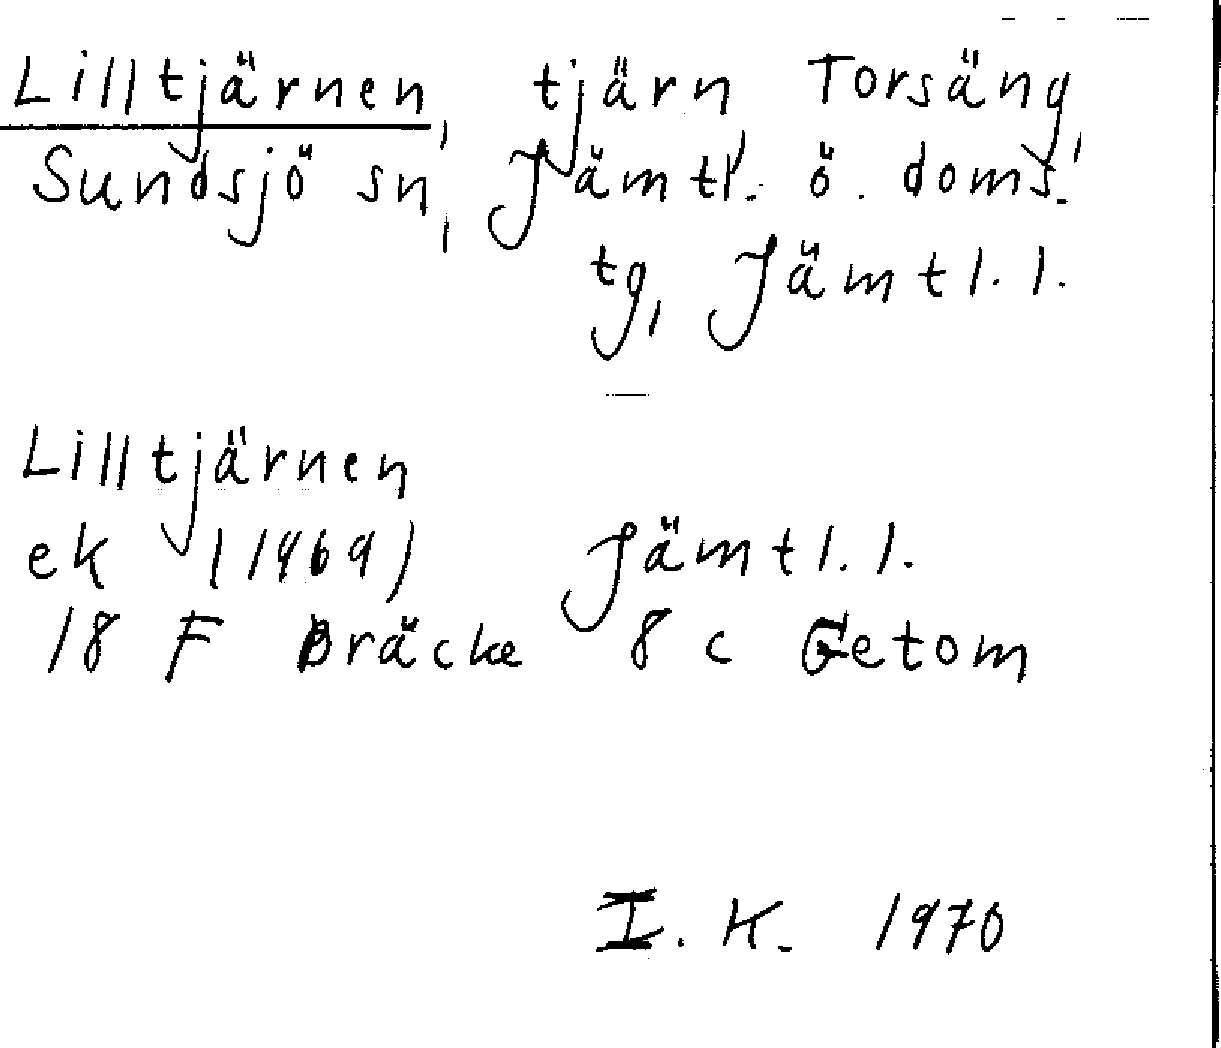 Lilltjärnen, tjärn, Torsäng,
Sundsjö sn, Jämtl. ö. doms.
tg, Jämtl. l.
Lilltjärnen
ek (1969) Jämtl. l.
18 F Bräcke 8 c Getom
I. K. 1970